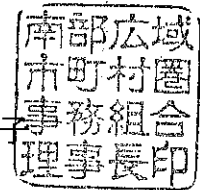 南部広域
市町村圏
子 事務組合
理事長印